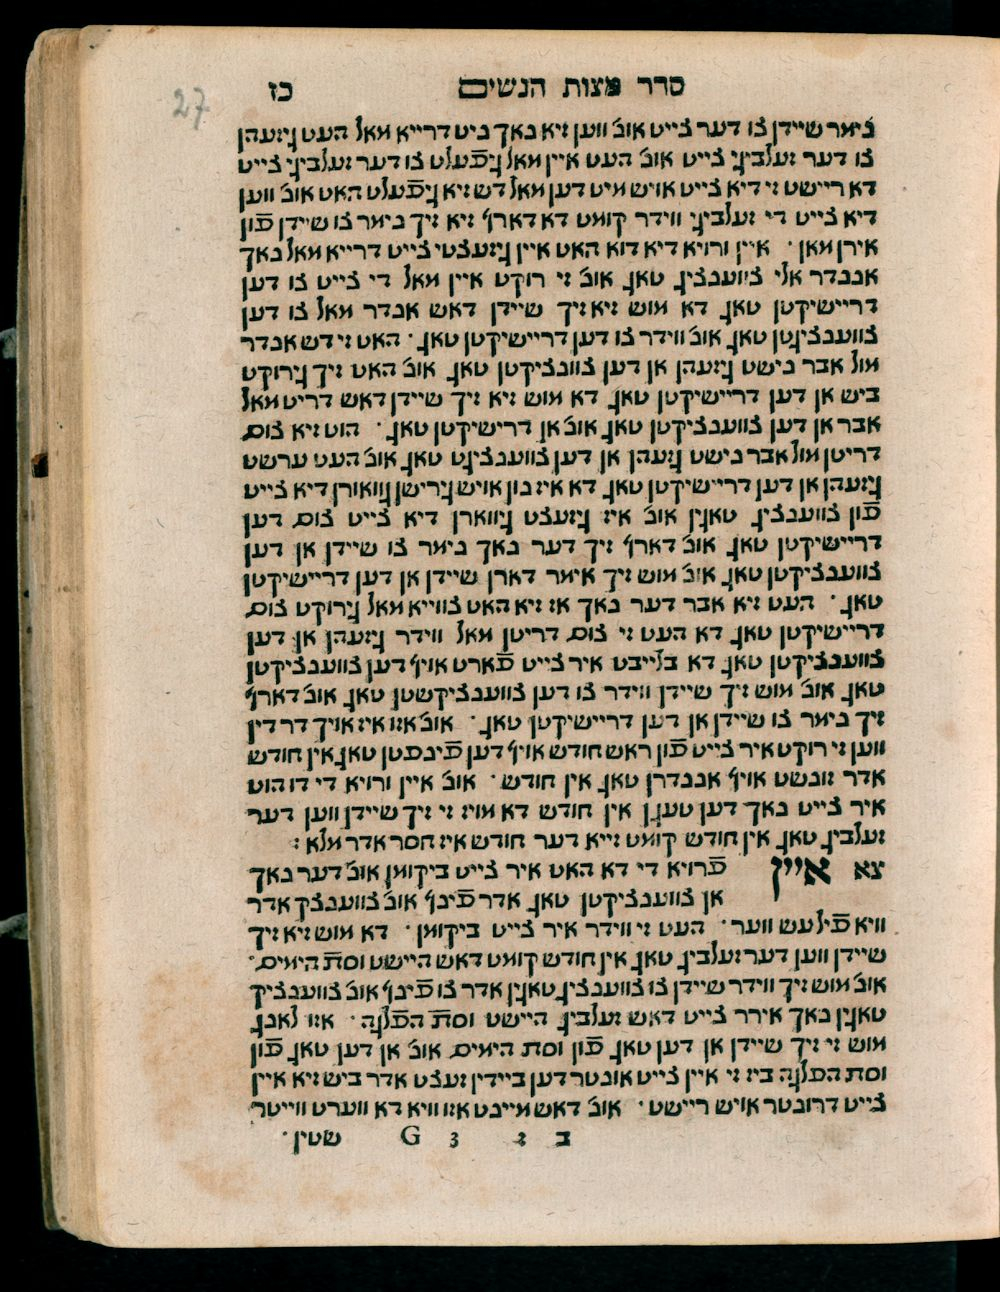 סדר מצות הנשים כז
27
נימר שיידן צו דער צייט אונ׳ ווען זיא נאך ניט דרייא מאל העט גיזעהן
צו דער זעלביגי צייט אונ׳ העט איין מאל גיפֿעלט צו דער זעלביגי צייט
דא ריישט זי דיא צייט אויש מיט דען מאל דש זיא גיפֿעלט האט אונ׳ ווען
דיא צייט די זעלביגי ווידר קומט דא דארף זיא זיך נימר צו שיידן פֿון
אירן מאן ׃ איין ורויא דיא דוא האט איין גיזעצטי צייט דרייא מאל נאך
אננדר אלי צווענציג טאג אונ׳ זי רוקט איין מאל די צייט צו דען
דריישיקטן טאג דא מוש זיא זיך שיידן דאש אנדר מאל צו דען
צווענציגטן טאג אונ׳ ווידר צו דען דריישיקטן טאג ׃ האט זי דש אנדר
מול אבר נישט גיזעהן אן דען צוונציקטן טאג אונ׳ האט זיך גירוקט
ביש אן דען דריישיקטן טאג דא מוש זיא זיך שיידן דאש דריט מאל
אבר אן דען צווענציקטן טאג אונ׳ אן דרישיקטן טאג ׃ הוט זיא צום
דריטן מול אבר נישט גיזעהן אן דען צווענציגט טאג אונ׳ העט ערשט
גיזעהן אן דען דריישיקטן טאג דא איז נון אויש גירישן גיוואורן דיא צייט
פֿון צווענציג טאגין אונ׳ איז גיזעצט גיווארן דיא צייט צום דען
דריישיקטן טאג אונ׳ דארף זיך דער נאך נימר צו שיידן אן דען
צווענציקטן טאג אונ׳ מוש זיך אימר דארן שיידן אן דען דריישיקטן
טאג ׃ העט זיא אבר דער נאך אז זיא האט צווייא מאל גירוקט צום
דריישיקטן טאג דא העט זי צום דריטן מאל ווידר גיזעהן אן דען
צווענציקטן טאג דא בלייבט איר צייט פֿארט אויף דען צווענציקטן
טאג אונ׳ מוש זיך שיידן ווידר צו דען צווענציקשטן טאג אונ׳ דארף
זיך נימר צו שיידן אן דען דריישיקטן טאג ׃ אונ׳ אזו איז אויך דר דין
ווען זי רוקט איר צייט פֿון ראש חודש אויף דען פֿינפֿטן טאג אין חודש
אדר זונשט אויף אננדרן טאג אין חודש ׃ אונ׳ איין ורויא די דו הוט
איר צייט נאך דען טעגן אין חודש דא מויז זי זיך שיידן ווען דער
זעלביג טאג אין חודש קומט זייא דער חודש איז חסר אדר מלא ׃
צא איין פֿרויא די דא האט איר צייט ביקומן אונ׳ דער נאך
אן צווענציקטן טאג אדר פֿינף אונ׳ צווענצק אדר
וויא פֿילעש ווער ׃ העט זי ווידר איר צייט ביקומן ׃ דא מוש זיא זיך
שיידן ווען דער זעלביג טאג אין חודש קומט דאש היישט וסת הימים ׃
אונ׳ מוש זיך ווידר שיידן צו צווענציג טאגין אדר צו פֿינף אונ׳ צווענציק
טאגין נאך אירר צייט דאש זעלביג היישט וסת הפלגה ׃ אזו לאנג
מוש זי זיך שיידן אן דען טאג פֿון וסת הימים אונ׳ אן דען טאג פֿון
וסת הפלגה ביז זי איין צייט אונטר דען ביידין זעצט אדר ביש זיא איין
צייט דרונטר אויש ריישט ׃ אונ׳ דאש מיינט אזו וויא דא ווערט ווייטר
ב ז 3 G שטין ׃